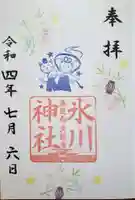 奉拝
氷川
神社
令和四年七月六日